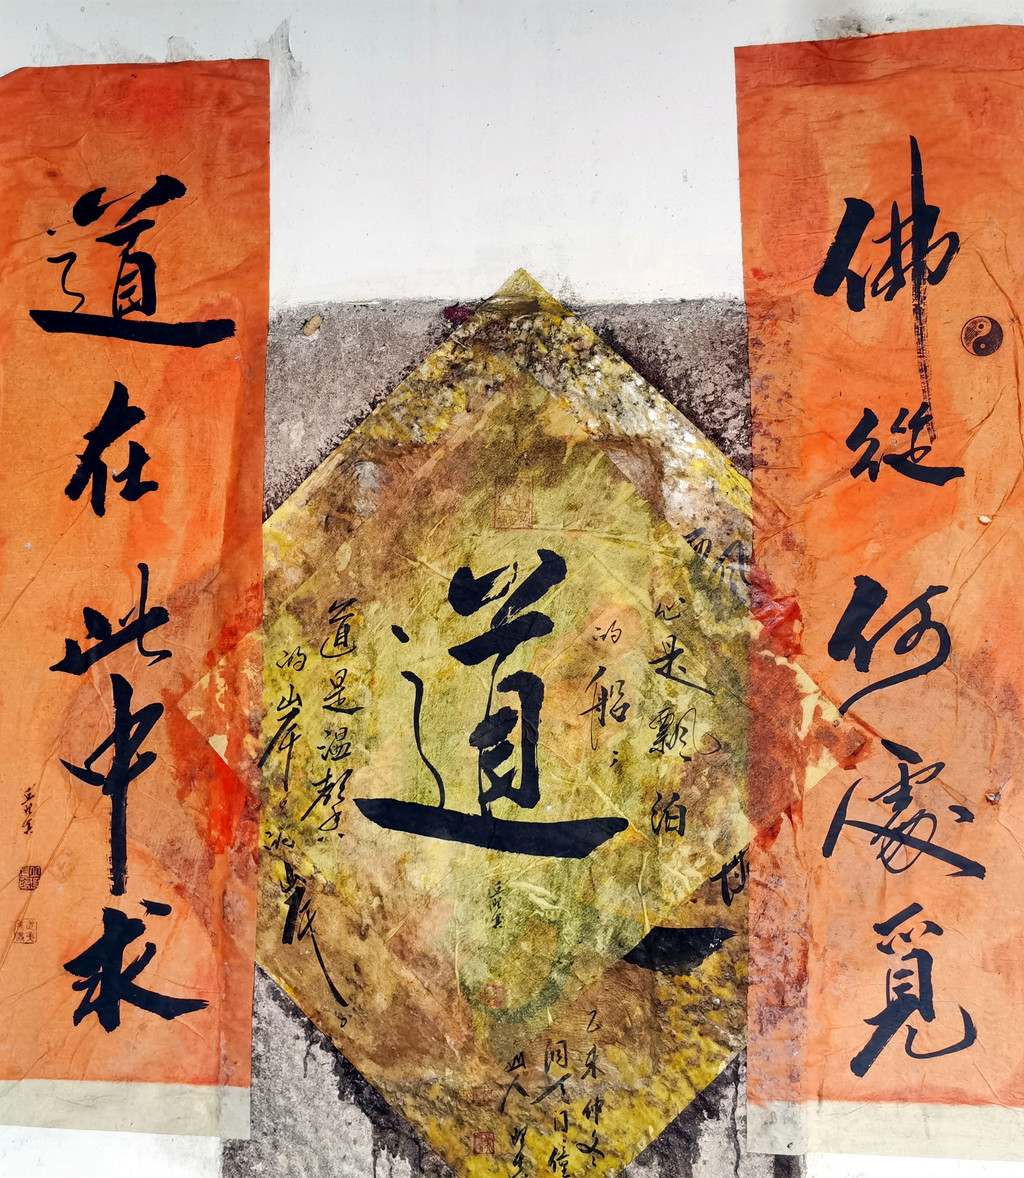 佛從何處覓
道在此中求
道
心是飄泊
的船
道是溫馨
的岸
乙未仲冬